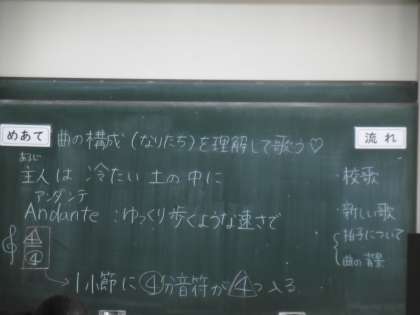 めあて 曲の構成(なりたち)を理解して歌う♡
あるじ
主人は 冷たい 土の 中に
アンダンテ
Andante：ゆっくり歩くような速さで
4
4
→1小節に④分音符が4つ入る
流れ
・校歌
・新しい歌
拍子について
曲の背景